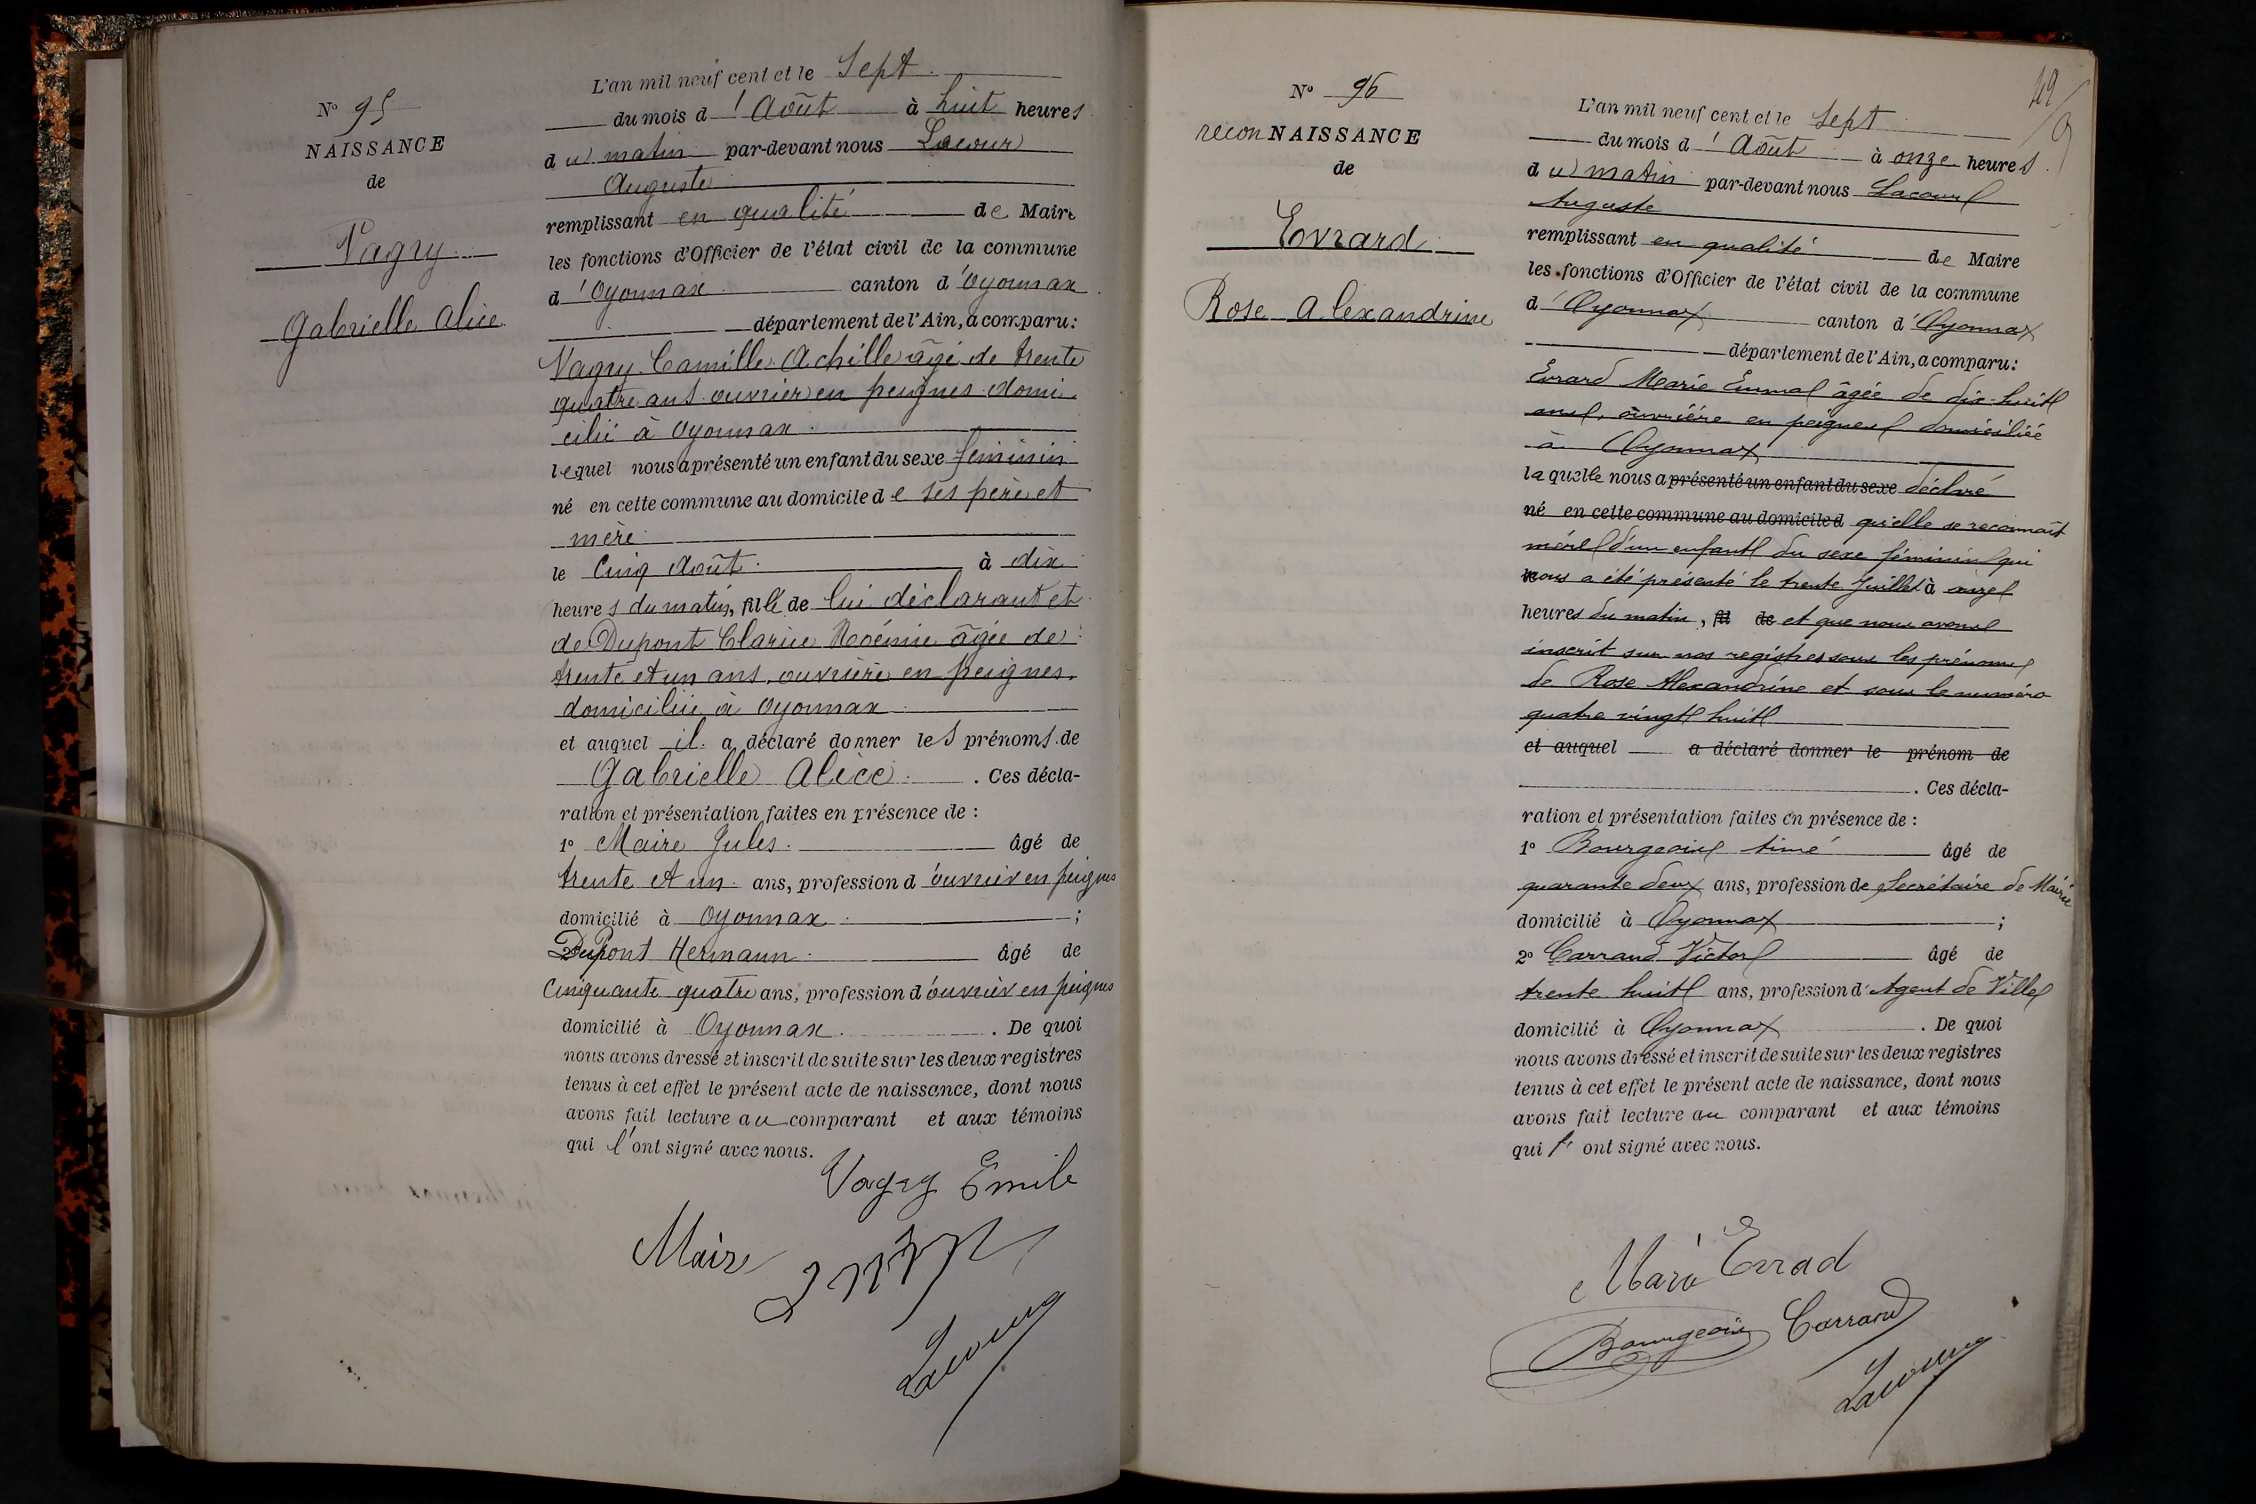 N° 95
NAISSANCE
de
Vagry
Gabrielle Alice
L'an mil neuf cent et le Sept
du mois d'Août à huit heures
du matin par-devant nous Lacour
Auguste
remplissant en qualité de Maire
les fonctions d'Officier de l'état civil de la commune
d'Oyonnax canton d'Oyonnax
département de l'Ain, a comparu:
Vagry Camille Achille âgé de trente
quatre ans ouvrier en peignes domi-
cilié à Oyonnax
lequel nous a présenté un enfant du sexe féminin
né en cette commune au domicile de ses père et
mère
le Cinq Août à dix
heures du matin, fille de lui déclarant et
de Dupont Clarice Noémie âgée de
trente et un ans, ouvrière en peignes,
domiciliée à Oyonnax
et auquel il a déclaré donner les prénoms de
Gabrielle Alice. Ces décla-
ration et présentation faites en présence de :
1° Maire Jules âgé de
trente et un ans, profession d'ouvrier en peignes
domicilié à Oyonnax ;
2° Dupont Hermann âgé de
Cinquante quatre ans, profession d'ouvrier en peignes
domicilié à Oyonnax. De quoi
nous avons dressé et inscrit de suite sur les deux registres
tenus à cet effet le présent acte de naissance, dont nous
avons fait lecture au comparant et aux témoins
qui l'ont signé avec nous.
Vagry Emile
Maire
Lacour
N° 96
reconNAISSANCE
de
Evrard
Rose Alexandrine
49
L'an mil neuf cent et le Sept
du mois d'Août à onze heures
du matin par-devant nous Lacour
Auguste
remplissant en qualité de Maire
les fonctions d'Officier de l'état civil de la commune
d'Oyonnax canton d'Oyonnax
département de l'Ain, a comparu:
Evrard Marie Emma âgée de dix-huit
ans, ouvrière en peignes domiciliée
à Oyonnax
laquelle nous a présenté un enfant du sexe déclaré
né en cette commune au domicile d qu'elle se reconnaît
mère d'un enfant du sexe féminin qui
nous a été présenté le trente Juillet à onze
heures du matin, fil de et que nous avons
inscrit sur nos registres sous les prénoms
de Rose Alexandrine et sous le numéro
quatre vingt huit
et auquel a déclaré donner le prénom de
. Ces décla-
ration et présentation faites en présence de :
1° Bourgeois Aimé âgé de
quarante deux ans, profession de Secrétaire de Mairie
domicilié à Oyonnax ;
2° Carrand Victor âgé de
trente huit ans, profession d'Agent de Ville
domicilié à Oyonnax. De quoi
nous avons dressé et inscrit de suite sur les deux registres
tenus à cet effet le présent acte de naissance, dont nous
avons fait lecture au comparant et aux témoins
qui l'ont signé avec nous.
Marie Evrad
Bourgeois Carrand
Lacour